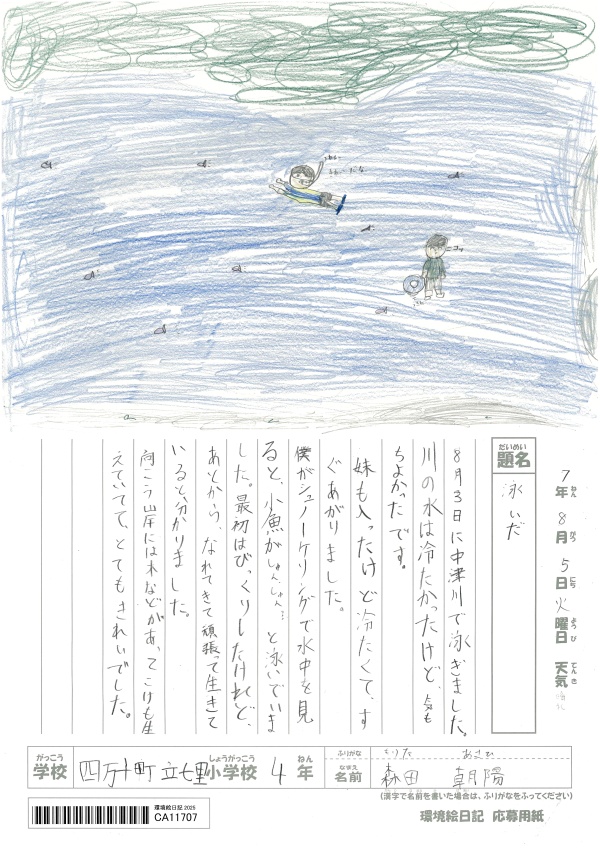 だいめい
題名
泳いだ
7年8月5日火曜日 天気 晴れ
ねん がつ にち ようび てんき
8月3日に中津川で泳ぎました。
川の水は冷たかったけど、気も
ちよかったです。
妹も入ったけど冷たくて、す
ぐあがりました。
僕がシュノーケリングで水中を見
ると、小魚がしゅんしゅん…と泳いでいま
した。最初はびっくりしたけれど、
あとから、なれてきて頑張って生きて
いると、分かりました。
向こう岸には木などがあってこけも生
えていてて、とてもきれいでした。
がっこう
学校
四万十町立七里
しょうがっこう
小学校
4
ねん
年
ふりがな
もりた あさひ
なまえ
名前
森田 朝陽
(漢字で名前を書いた場合は、ふりがなをふってください)
環境絵日記 2025
CA11707
環境絵日記 応募用紙